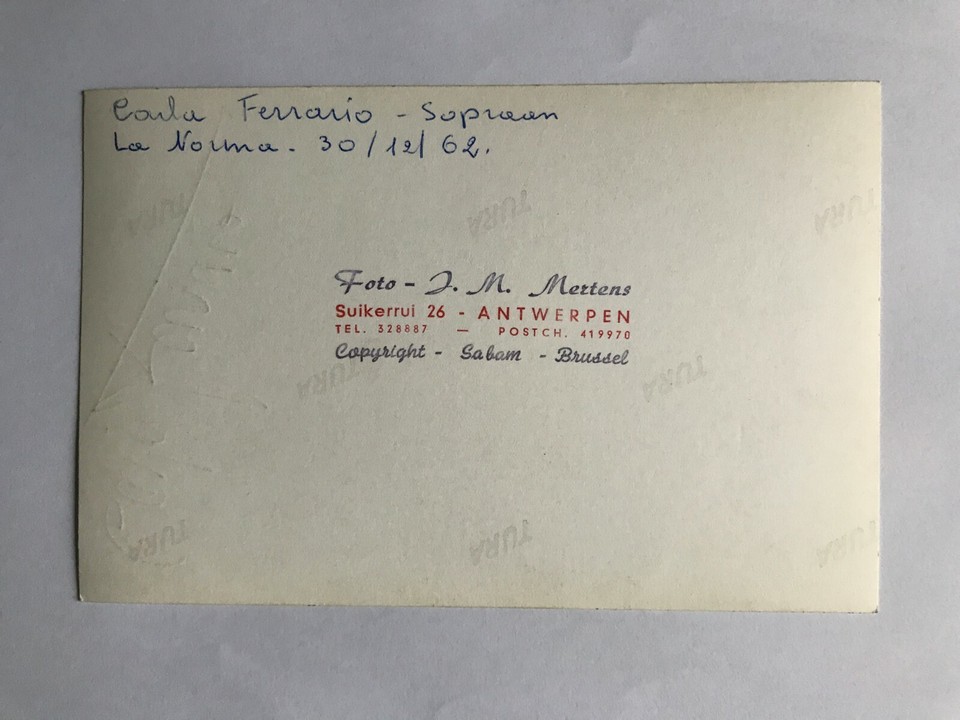 Carla Ferrario - Sopraan
La Norma - 30/12/62.
TURA
TURA
TURA
Foto - J. M. Mertens
Suikerrui 26 - ANTWERPEN
TEL. 328887 — POSTCH. 419970
Copyright - Sabam - Brussel
TURA
TURA
TURA
TURA
TURA